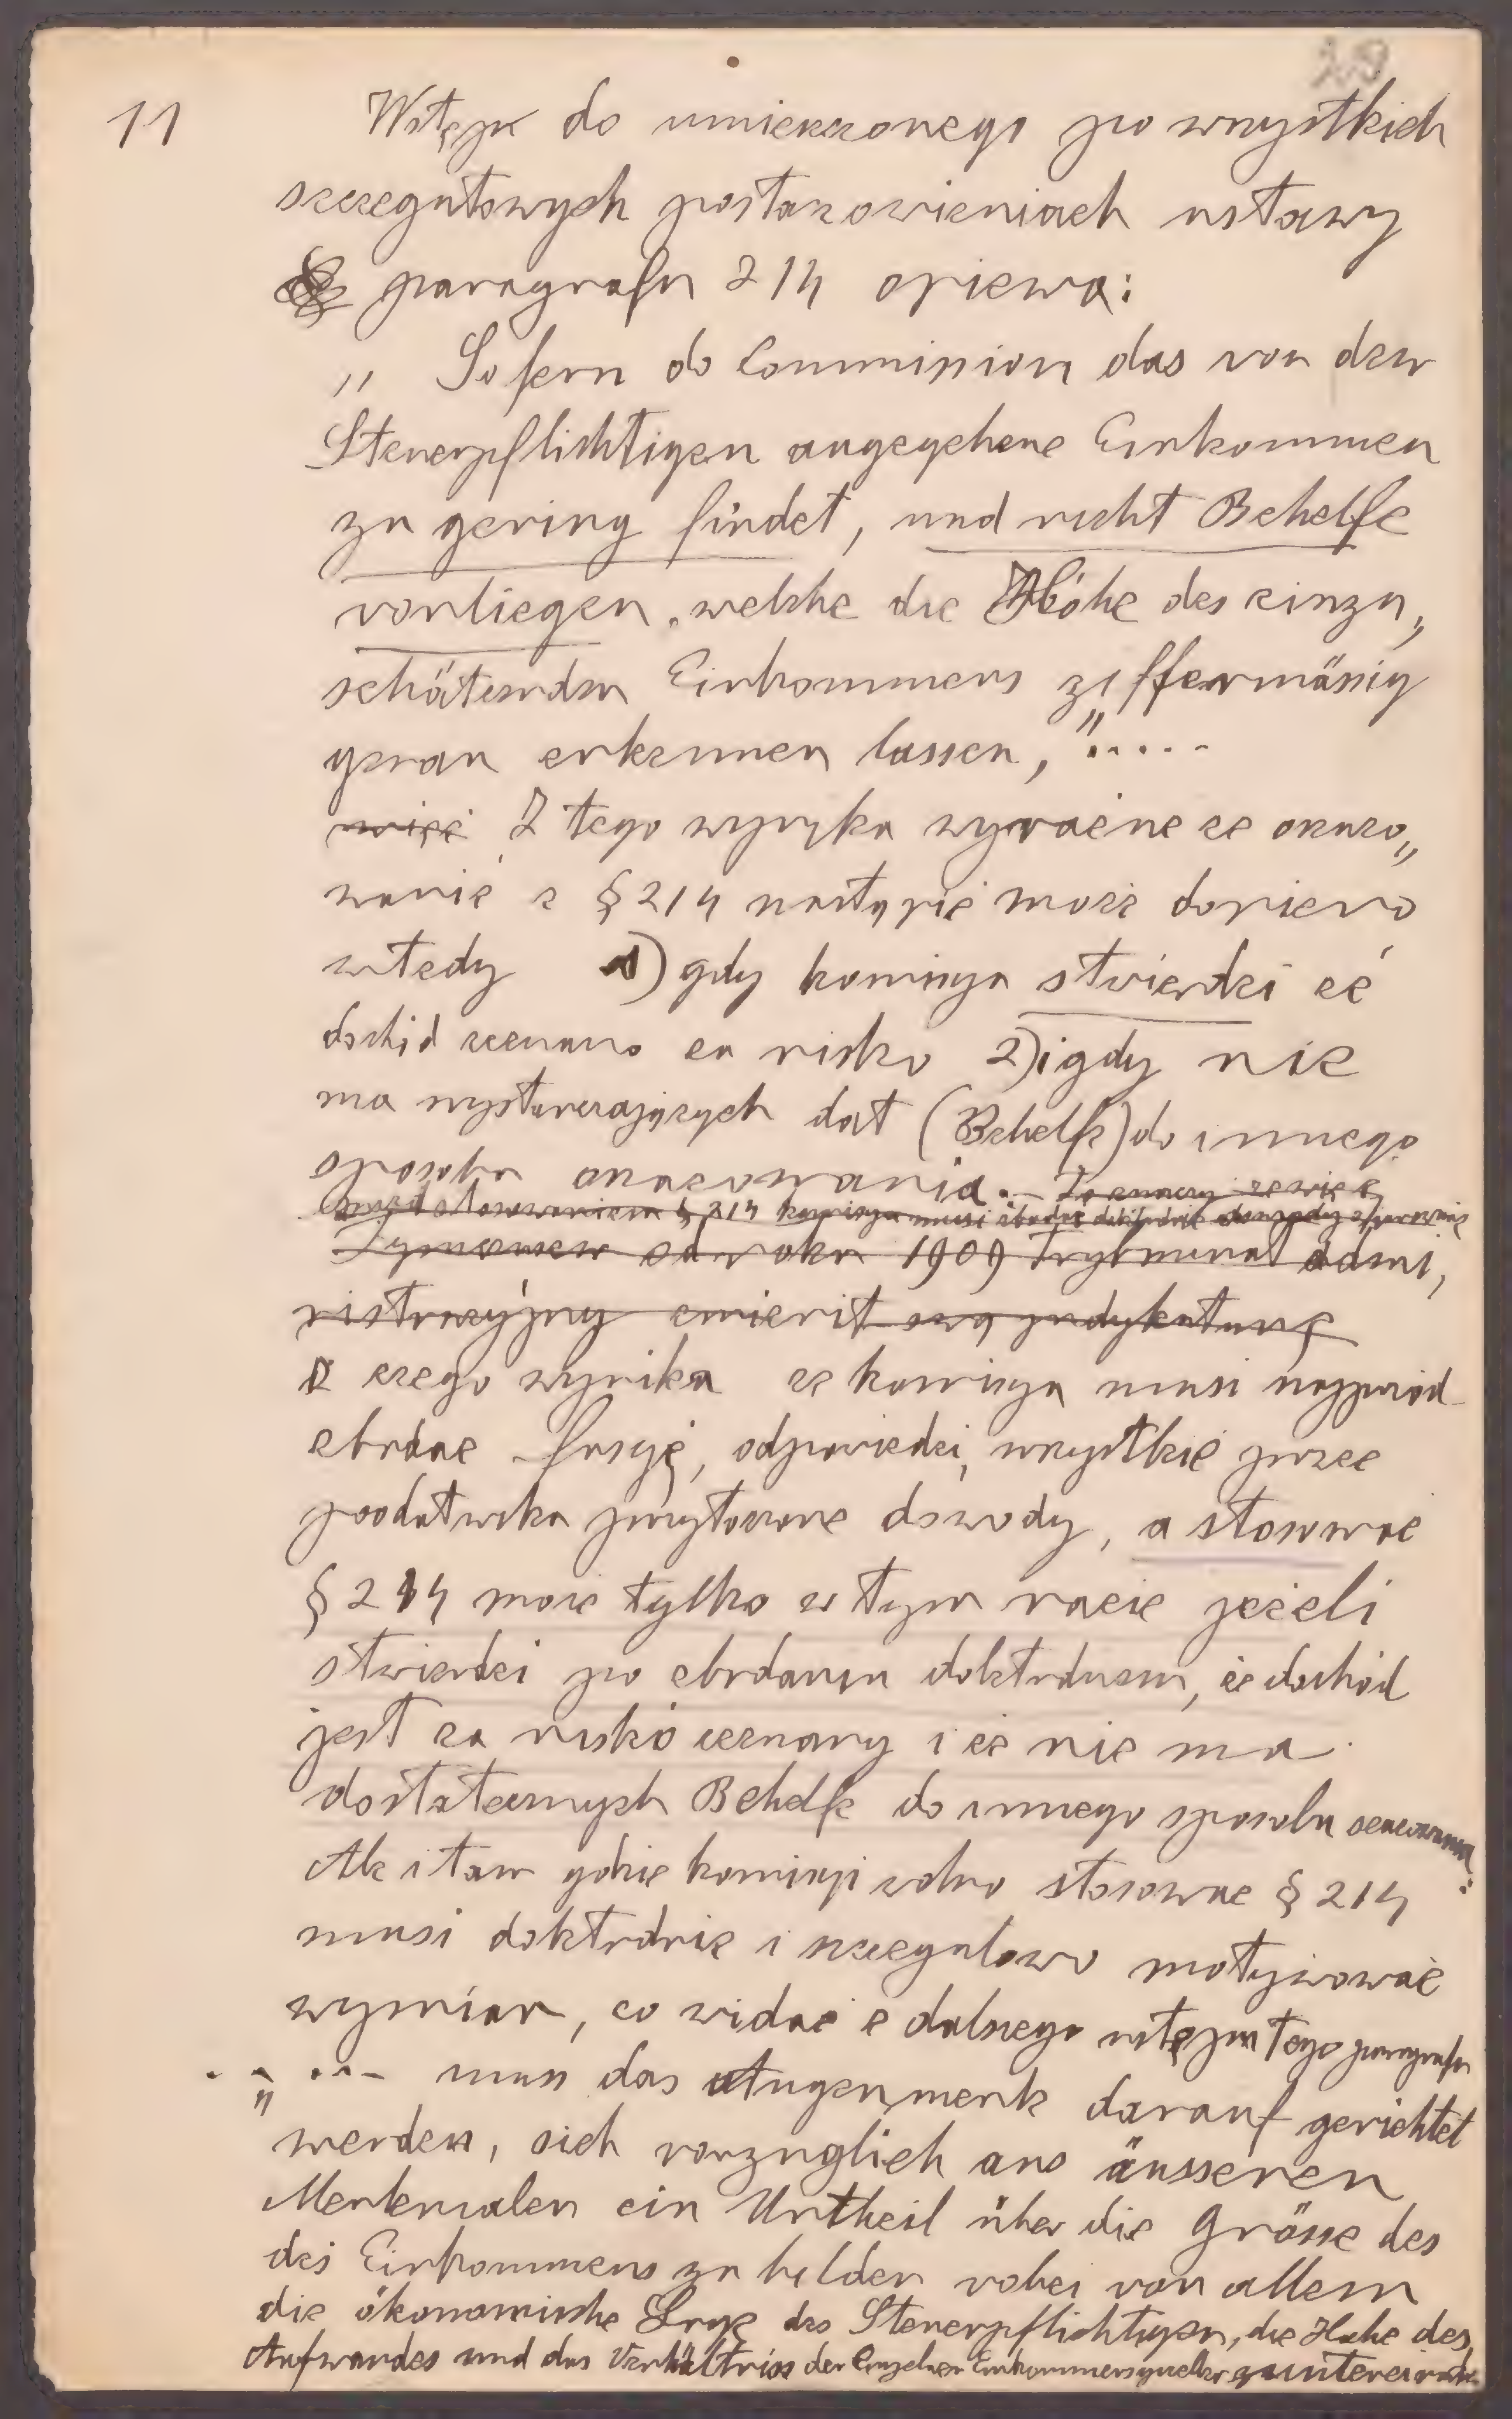 29
11
Wstęp do umieszczonego po wszystkich
szczegułowych postanowieniach ustawy
paragrafu 214 opiewa:
„ Sofern do Commission das von dem
Steuerpflichtigen angegebene Einkommen
zu gering findet, und nicht Behelfe
vorliegen, welche die Höhe des einzu„
schätzenden Einkommens ziffermässig
genau erkennen lassen,".....
więć Z tego wynyka wyraźne że oszaco„
wanie z § 214 nastąpić może dopiero
wtedy 1) gdy komisya stwierdzi że
dochód zeznano za nisko 2) i gdy nie
ma wystarczających dat (Behelfe) do innego
sposobu oszacowania.— To znaczy że więc
przed stosowaniem § 214 komisya musi zbadać dokładnie dowody
Tymczasem od roku 1909 Trybunał admi,
nistracyjny zmienił swą judykaturę
z czego wynika że komisya musi najpierw
zbadać fasyę, odpowiedzi, wszystkie przez
podatnika przytoczone dowody, a stosować
§ 214 może tylko w tym razie jeżeli
stwierdzi po zbadaniu dokładnem, że dochód
jest za nisko zeznany i że nie ma
dostatecznych Behelfe do innego sposobu oszacowania.
Ale i tam gdzie komisyi wolno stosować § 214
musi dokładnie i szczegulowo motywować
wymiar, co widać z dalszego ustępu tego paragrafu
„ ... muss das Augenmerk darauf gerichtet
werden, sich vorzuglich aus äusseren
Merkmalen ein Urtheil über die Grösse des
des Einkommens zu bilden wobei von allem
die ökonomische Lage des Steuerpflichtigen, die Hohe des
Aufwandes und das Verhältniss der einzelnen Einkommensquellen zu untereinander